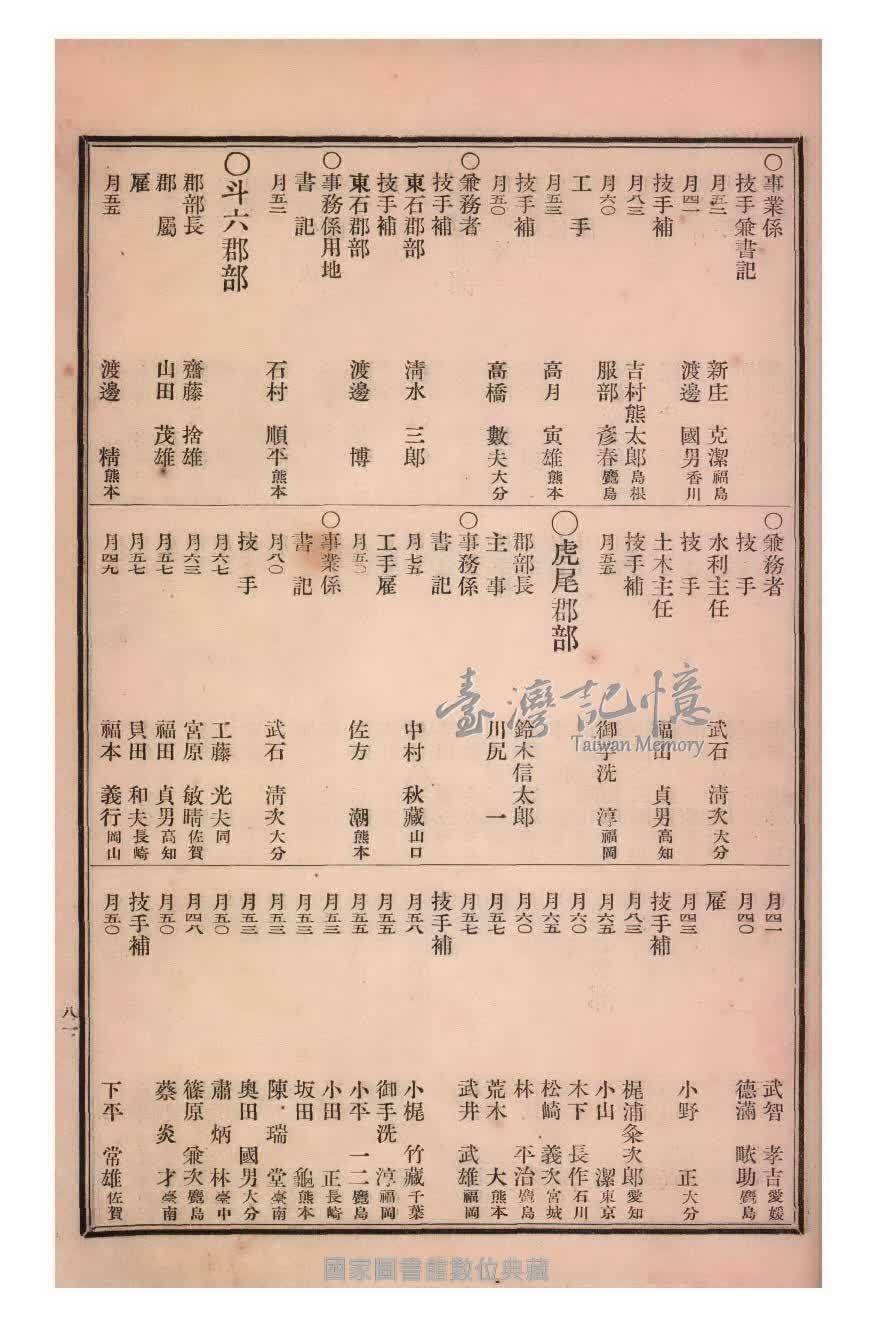 ○事業係
技手兼書記
月五二 新庄 克潔 福島
月四一 渡邊 國男 香川
技手補
月八三 吉村熊太郎 島根
月六〇 服部 彦春 鹿島
工手
月五三 高月 寅雄 熊本
技手補
月五〇 高橋 數夫 大分
○兼務者
技手補
東石郡部 淸水 三郎
技手補
東石郡部 渡邊 博
○事務係用地
書記
月五二 石村 順平 熊本
○斗六郡部
郡部長 齋藤 捨雄
郡屬 山田 茂雄
雇
月五五 渡邊 精 熊本
○兼務者
技手
水利主任 武石 淸次 大分
技手
土木主任 福田 貞男 高知
技手補
月五五 御手洗 淳 福岡
○虎尾郡部
郡部長 鈴木信太郎
主事 川尻 一
○事務係
書記
月七五 中村 秋藏 山口
工手雇
月五二 佐方 潮 熊本
○事業係
書記
月八〇 武石 淸次 大分
技手
月六七 工藤 光夫 同
月六三 宮原 敏晴 佐賀
月五七 福田 貞男 高知
月五七 貝田 和夫 長崎
月四九 福本 義行 岡山
月四一 武智 孝吉 愛媛
月四〇 德滿 畩助 鹿島
雇
月四三 小野 正 大分
技手補
月八三 梶浦粂次郎 愛知
月六五 小山 潔 東京
月六〇 木下 長作 石川
月六五 松崎 義次 宮城
月六〇 林 平治 鹿島
月五七 荒木 大 熊本
月五七 武井 武雄 福岡
技手補
月五八 小梶 竹藏 千葉
月五五 御手洗 淳 福岡
月五五 小平 一二 鹿島
月五三 小田 正 長崎
月五三 坂田 龜 熊本
月五三 陳 瑞堂 臺南
月五三 奥田 國男 大分
月五〇 肅 炳林 臺中
月四八 篠原 兼次 鹿島
月五〇 蔡 炎才 臺南
技手補
月五〇 下平 常雄 佐賀
八一
臺灣記憶
Taiwan Memory
國家圖書館數位典藏